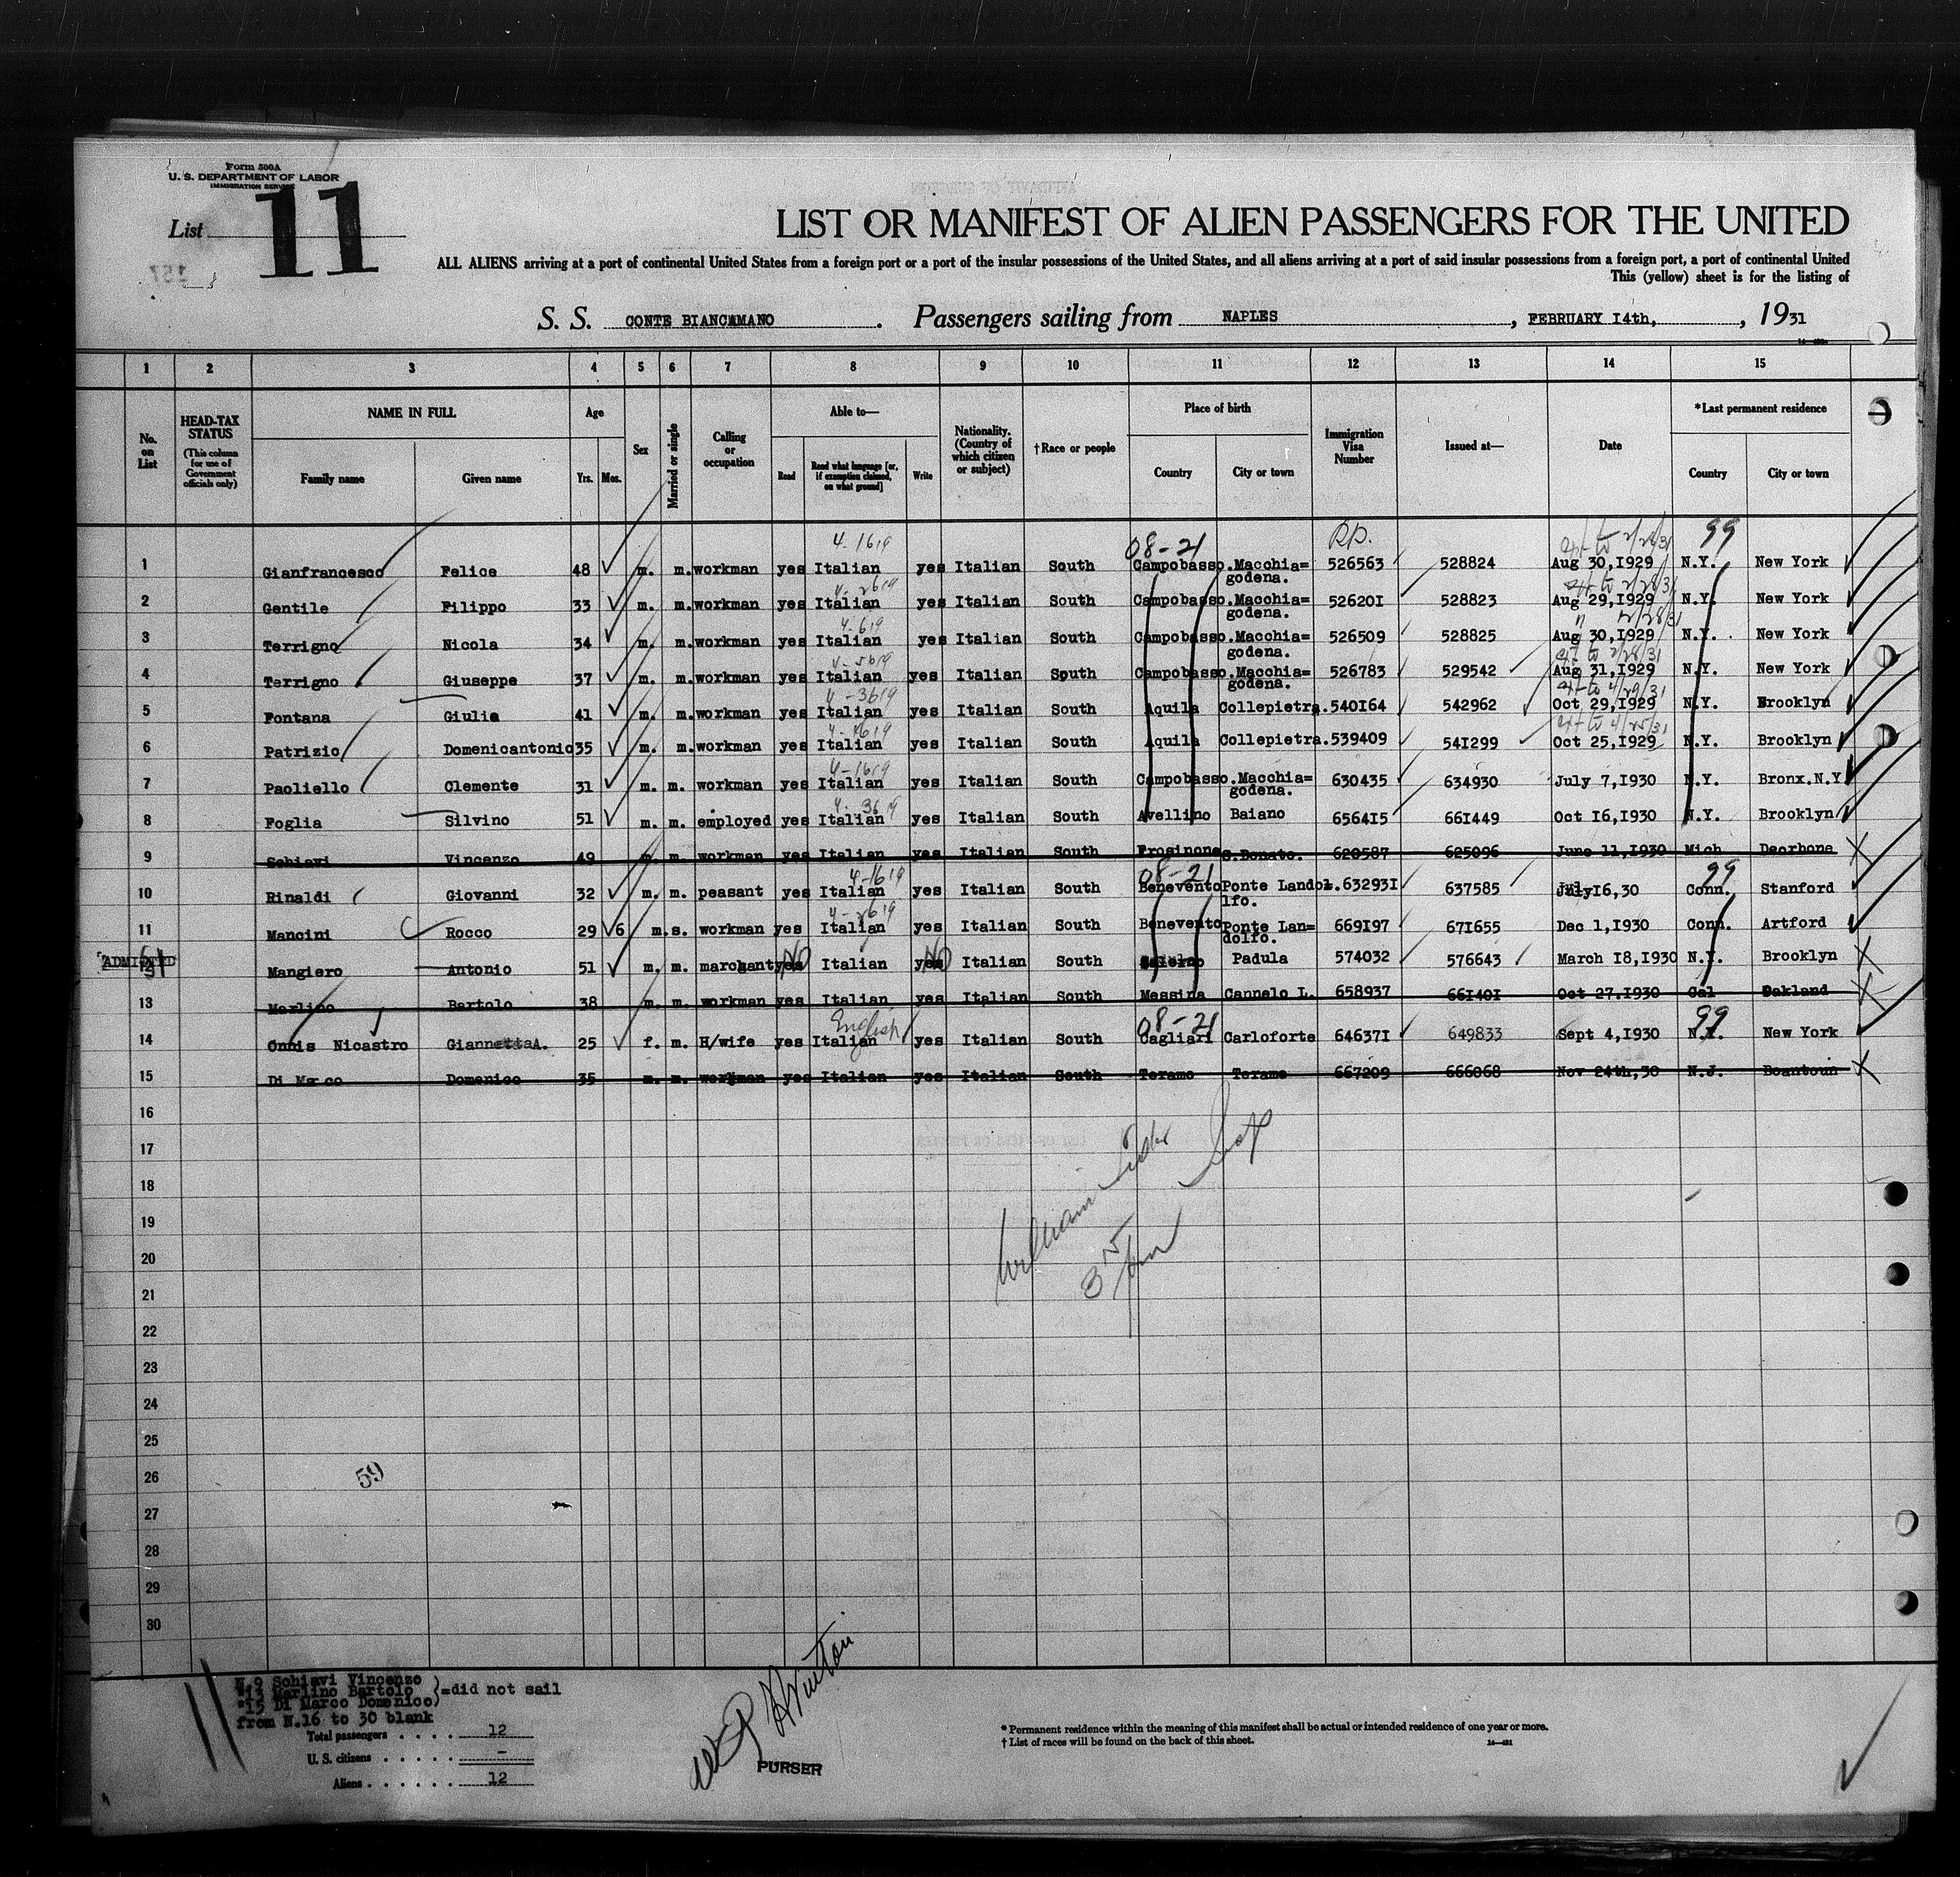 Form 500A
U. S. DEPARTMENT OF LABOR
IMMIGRATION SERVICE
List 11
LIST OR MANIFEST OF ALIEN PASSENGERS FOR THE UNITED
ALL ALIENS arriving at a port of continental United States from a foreign port or a port of the insular possessions of the United States, and all aliens arriving at a port of said insular possessions from a foreign port, a port of continental United
This (yellow) sheet is for the listing of
S. S. CONTE BIANCAMANO. Passengers sailing from NAPLES, FEBRUARY 14th, , 1931
1 2 3 4 5 6 7 8 9 10 11 12 13 14 15
No. on List HEAD-TAX STATUS (This column for use of Government officials only) NAME IN FULL Family name Given name Age Yrs. Mos. Sex Married or single Calling or occupation Able to— Read Read what language [or, if exemption claimed, on what ground] Write Nationality. (Country of which citizen or subject) †Race or people Place of birth Country City or town Immigration Visa Number Issued at— Date *Last permanent residence Country City or town
4-1619 08-21 99
1 Gianfrancesco Felice 48 m. m. workman yes Italian yes Italian South Campobasso. Macchia=godena. 526563 528824 Aug 30,1929 N.Y. New York
4-2619
2 Gentile Filippo 33 m. m. workman yes Italian yes Italian South Campobasso. Macchia=godena. 526201 528823 Aug 29,1929 N.Y. New York
4-619
3 Terrigno Nicola 34 m. m. workman yes Italian yes Italian South Campobasso. Macchia=godena. 526509 528825 Aug 30,1929 N.Y. New York
4-5619
4 Terrigno Giuseppe 37 m. m. workman yes Italian yes Italian South Campobasso. Macchia=godena. 526783 529542 Aug 31,1929 N.Y. New York
4-3619
5 Fontana Giulio 41 m. m. workman yes Italian yes Italian South Aquila Collepietra. 540164 542962 Oct 29,1929 N.Y. Brooklyn
6 Patrizio Domenicantonio 35 m. m. workman yes Italian yes Italian South Aquila Collepietra. 539409 541299 Oct 25,1929 N.Y. Brooklyn
4-1619
7 Paoliello Clemente 31 m. m. workman yes Italian yes Italian South Campobasso. Macchia=godena. 630435 634930 July 7,1930 N.Y. Bronx.N.Y
4-3619
8 Foglia Silvino 51 m. m. employed yes Italian yes Italian South Avellino Baiano 656415 661449 Oct 16,1930 N.Y. Brooklyn
9 Schiavi Vincenzo 49 m. m. workman yes Italian yes Italian South Frosinone S.Donato. 620587 625096 June 11,1930 Mich Deorbone
4-1619 08-21 99
10 Rinaldi Giovanni 32 m. m. peasant yes Italian yes Italian South Benevento Ponte Landol. lfo. 632931 637585 July16,30 Conn. Stanford
4-2619
11 Mancini Rocco 29 6 m. s. workman yes Italian yes Italian South Benevento Ponte Lan=dolfo. 669197 671655 Dec 1,1930 Conn. Artford
ADMITTED Mangiero Antonio 51 m. m. marchant yes NO Italian yes NO Italian South Salerno Padula 574032 576643 March 18,1930 N.Y. Brooklyn
13 Merlino Bartolo 38 m. m. workman yes Italian yes Italian South Messina Cannelo L. 658937 661401 Oct 27.1930 Cal Oakland
English 08-21 99
14 Onnis Nicastro Giannetta A. 25 f. m. H/wife yes Italian yes Italian South Cagliari Carloforte 646371 649833 Sept 4,1930 N.Y. New York
15 Di Marco Domenico 35 m. m. workman yes Italian yes Italian South Teramo Teramo 667209 666068 Nov 24th,30 N.J. Boantoun
16
17
18
19
20
21
22
23
24
25
26
59
27
28
29
30
N.9 Schiavi Vincenzo
"13 Marlino Bartolo
"15 Di Marco Domenico)=did not sail
from N.16 to 30 blank
Total passengers . . . . 12
U. S. citizens . . . . . -
Aliens . . . . . . 12
PURSER
* Permanent residence within the meaning of this manifest shall be actual or intended residence of one year or more.
† List of races will be found on the back of this sheet.